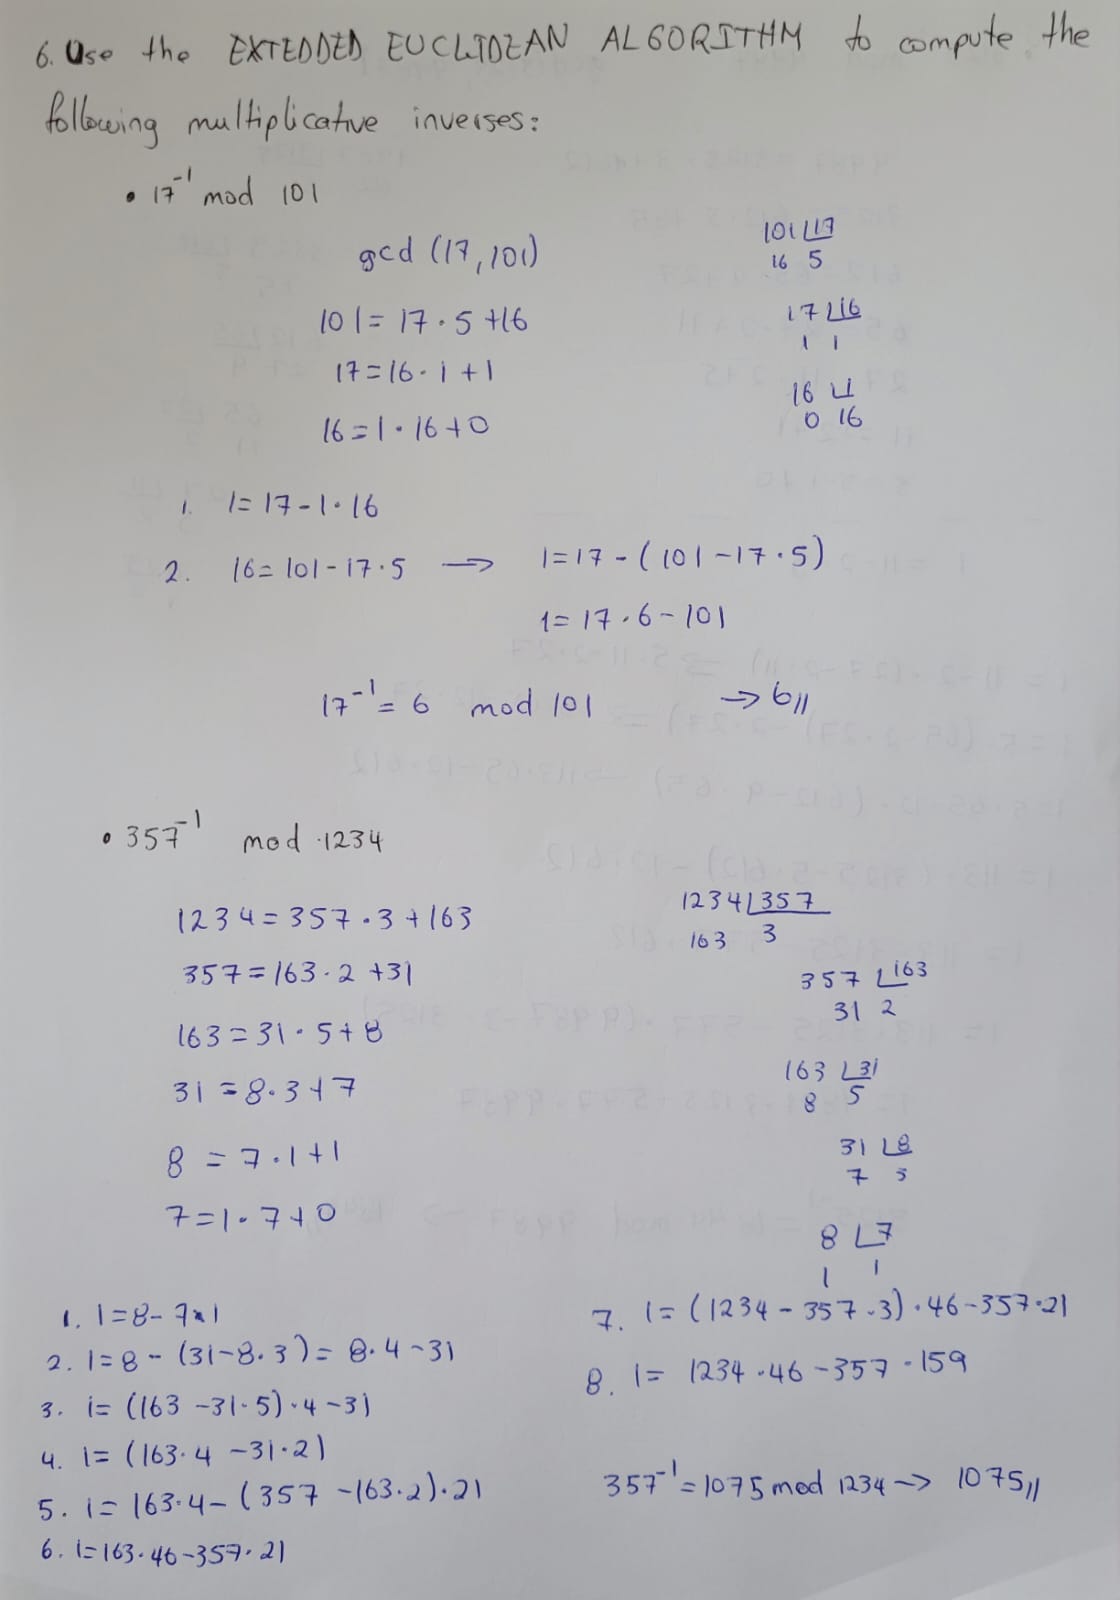 6. Use the EXTEDDED EUCLIDEAN ALGORITHM to compute the
following multiplicative inverses:
• 17⁻¹ mod 101
gcd (17, 101)
101 = 17 · 5 + 16
17 = 16 · 1 + 1
16 = 1 · 16 + 0
101 17
16 5
17 16
1 1
16 1
0 16
1. 1 = 17 - 1 · 16
2. 16 = 101 - 17 · 5 → 1 = 17 - (101 - 17 · 5)
1 = 17 · 6 - 101
17⁻¹ = 6 mod 101 → 6//
• 357⁻¹ mod 1234
1234 = 357 · 3 + 163
357 = 163 · 2 + 31
163 = 31 · 5 + 8
31 = 8 · 3 + 7
8 = 7 · 1 + 1
7 = 1 · 7 + 0
1234 357
163 3
357 163
31 2
163 31
8 5
31 8
7 3
8 7
1 1
1. 1 = 8 - 7 · 1
2. 1 = 8 - (31 - 8 · 3) = 8 · 4 - 31
3. 1 = (163 - 31 · 5) · 4 - 31
4. 1 = (163 · 4 - 31 · 21
5. 1 = 163 · 4 - (357 - 163 · 2) · 21
6. 1 = 163 · 46 - 357 · 21
7. 1 = (1234 - 357 · 3) · 46 - 357 · 21
8. 1 = 1234 · 46 - 357 · 159
357⁻¹ = 1075 mod 1234 → 1075//